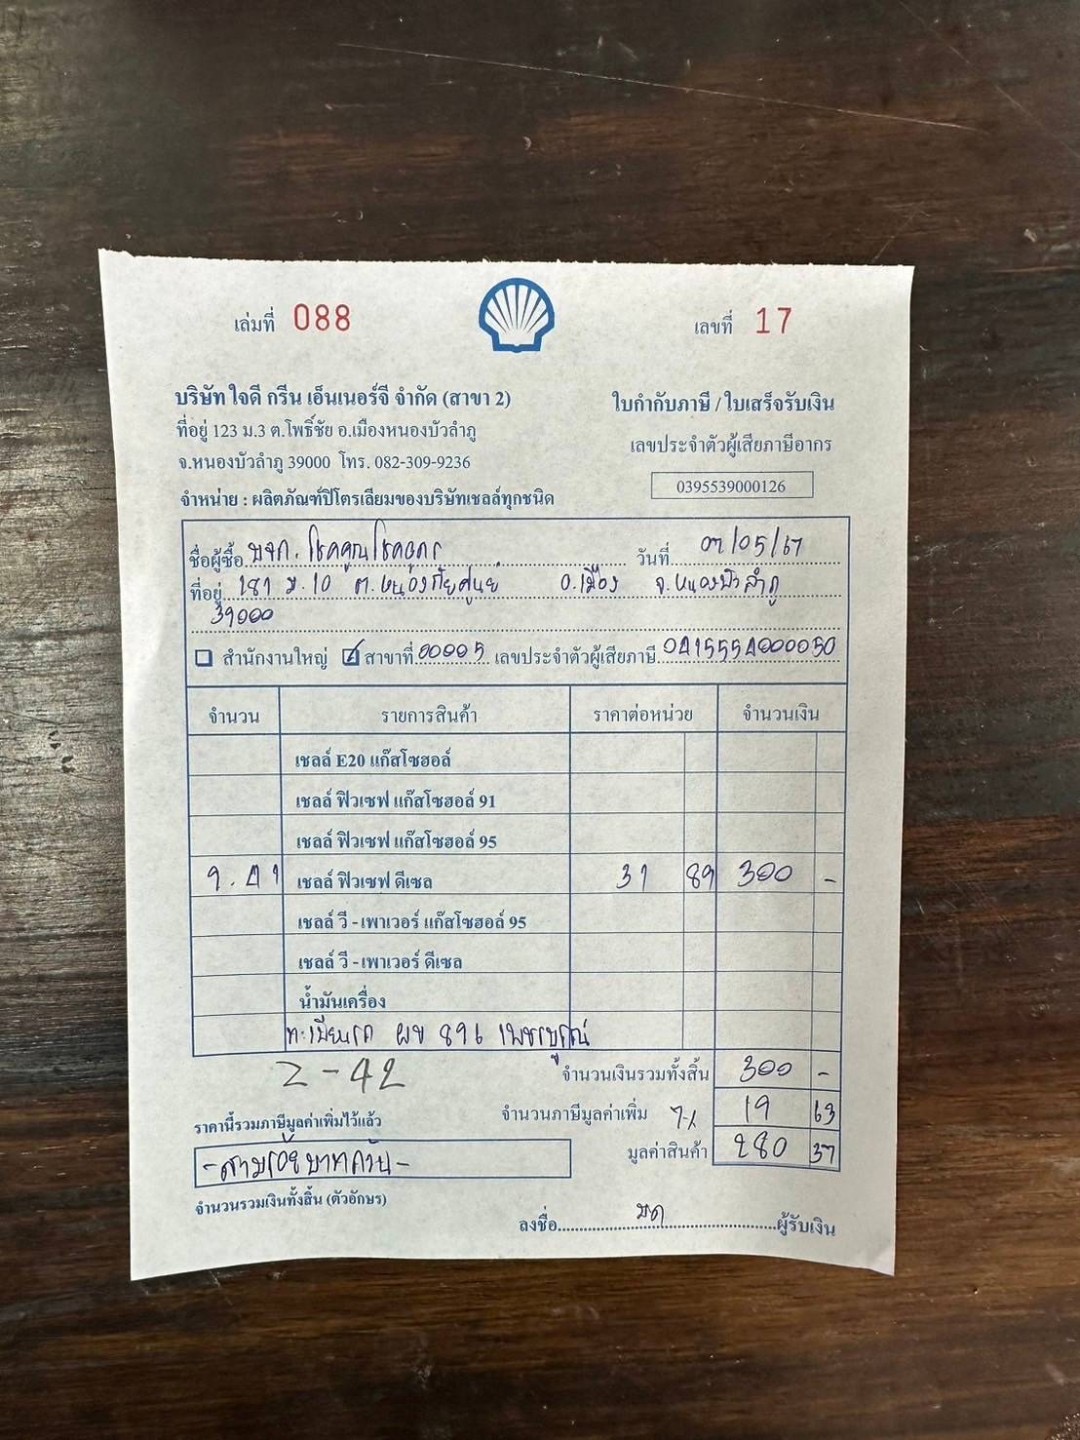 เล่มที่ 088
เลขที่ 17
บริษัท ใจดี กรีน เอ็นเนอร์จี จำกัด (สาขา 2)
ใบกำกับภาษี / ใบเสร็จรับเงิน
ที่อยู่ 123 ม.3 ต.โพธิ์ชัย อ.เมืองหนองบัวลำภู
เลขประจำตัวผู้เสียภาษีอากร
จ.หนองบัวลำภู 39000 โทร. 082-309-9236
0395539000126
จำหน่าย : ผลิตภัณฑ์ปิโตรเลียมของบริษัทเชลล์ทุกชนิด
ชื่อผู้ซื้อ หจก. โชคคูณโชคถาวร วันที่ 07/05/67
ที่อยู่ 181 ม.10 ต.หนองภัยศูนย์ อ.เมือง จ.หนองบัวลำภู
39000
สำนักงานใหญ่ สาขาที่ 00005 เลขประจำตัวผู้เสียภาษี 0415554000050
จำนวน รายการสินค้า ราคาต่อหน่วย จำนวนเงิน
เชลล์ E20 แก๊สโซฮอล์
เชลล์ ฟิวเซฟ แก๊สโซฮอล์ 91
เชลล์ ฟิวเซฟ แก๊สโซฮอล์ 95
9.41 เชลล์ ฟิวเซฟ ดีเซล 31 89 300 -
เชลล์ วี - เพาเวอร์ แก๊สโซฮอล์ 95
เชลล์ วี - เพาเวอร์ ดีเซล
น้ำมันเครื่อง
ทะเบียนรถ ผข 896 เพชรบูรณ์
2-42
จำนวนเงินรวมทั้งสิ้น 300 -
ราคานี้รวมภาษีมูลค่าเพิ่มไว้แล้ว
จำนวนภาษีมูลค่าเพิ่ม 7% 19 63
มูลค่าสินค้า 280 37
-สามร้อยบาทถ้วน-
จำนวนรวมเงินทั้งสิ้น (ตัวอักษร)
ลงชื่อ ผู้รับเงิน